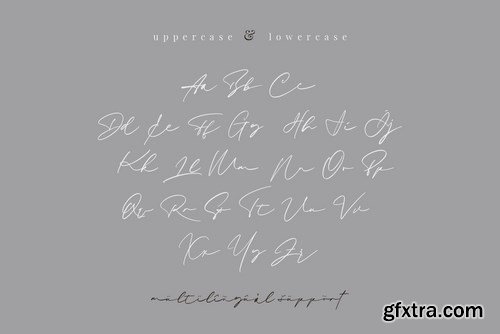 uppercase & lowercase
Aa Bb Cc
Dd Ee Ff Gg Hh Ii Jj
Kk Ll Mm Nn Oo Pp
Qq Rr Ss Tt Uu Vv
Xx Yy Zz
mültilïngüâl süppört
gfxtra.com